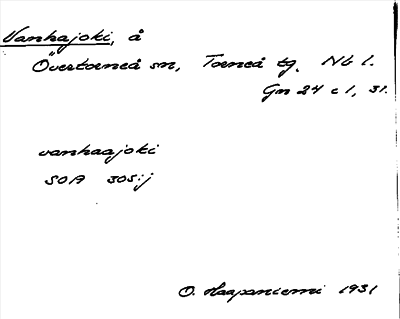 Vanhajoki, å
Övertorneå sn, Torneå tg. Nb l.
Gm 24 c 1, 31.
vanhaajoki
SOA 305:j
O. Haapaniemi 1931